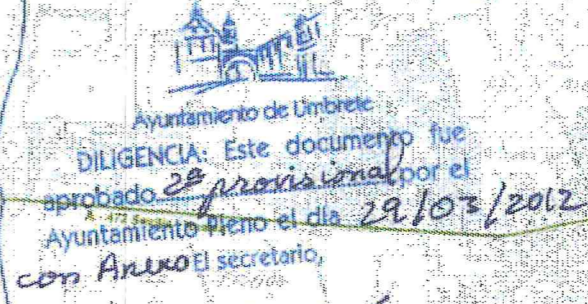 Ayuntamiento de Umbrete
DILIGENCIA: Este documento fue
aprobado 2ª provisional por el
Ayuntamiento Pleno el día 29/03/2012
con Anexo El secretario,